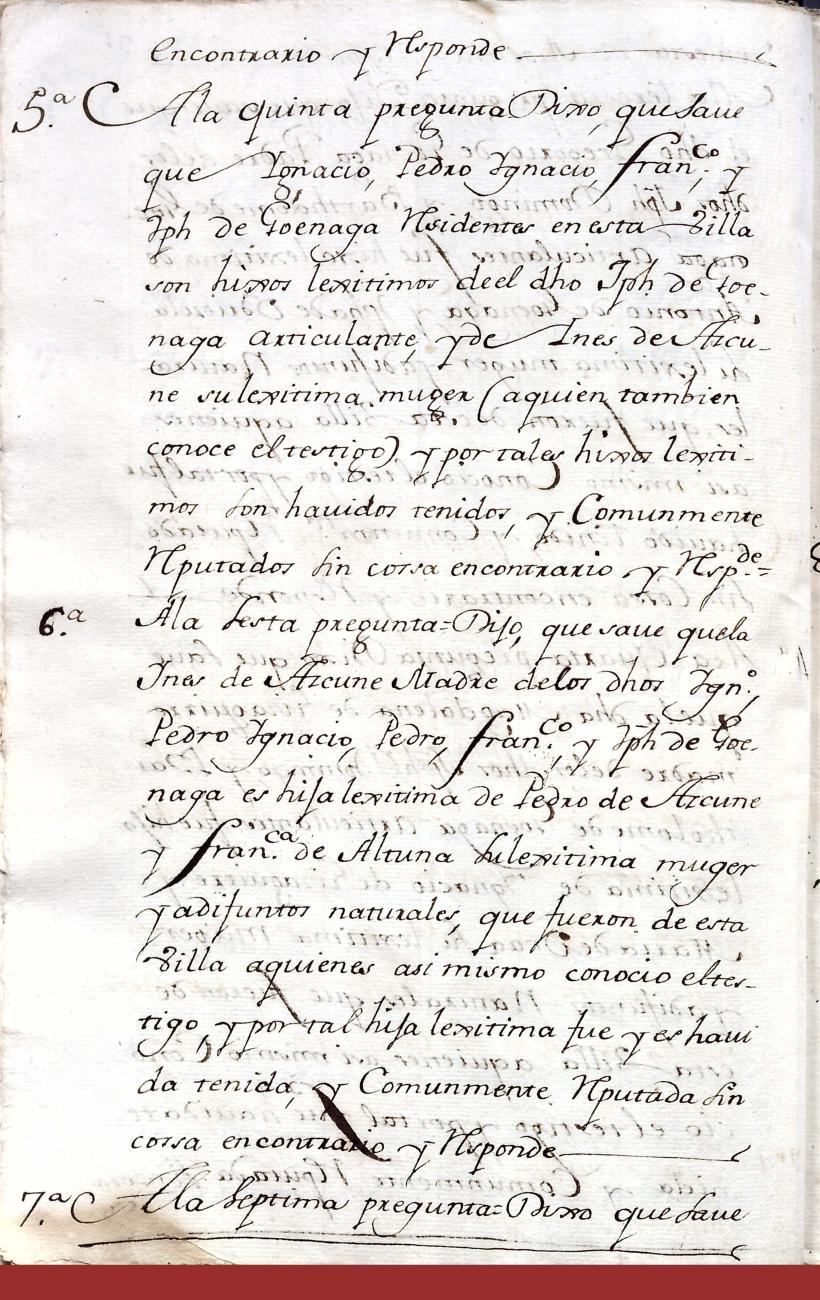 encontrario y Responde
5.ª A la quinta pregunta Dixo, que save
que Ygnacio, Pedro Ygnacio, fran.co y
Jph de Goenaga Residentes en esta Villa
son hixos lexitimos de el dho Jph de Goe-
naga articulante, y de Ines de Azcu-
ne su lexitima muger (a quien tambien
conoce el testigo) y por tales hixos lexiti-
mos son havidos tenidos, y Comunmente
Reputados sin cossa encontrario y Resp.de=
6.ª A la sesta pregunta= Dijo, que save que la
Ines de Azcune Madre de los dhos Ygn.º,
Pedro Ygnacio, Pedro, fran.co, y Jph de Goe-
naga es hija lexitima de Pedro de Azcune
y fran.ca de Altuna su lexitima muger
y adifuntos naturales, que fueron de esta
Villa a quienes asi mismo conocio el tes-
tigo, y por tal hija lexitima fue y es havi
da tenida, y Comunmente Reputada sin
cossa encontrario y Responde
7.ª A la septima pregunta= Dixo que save